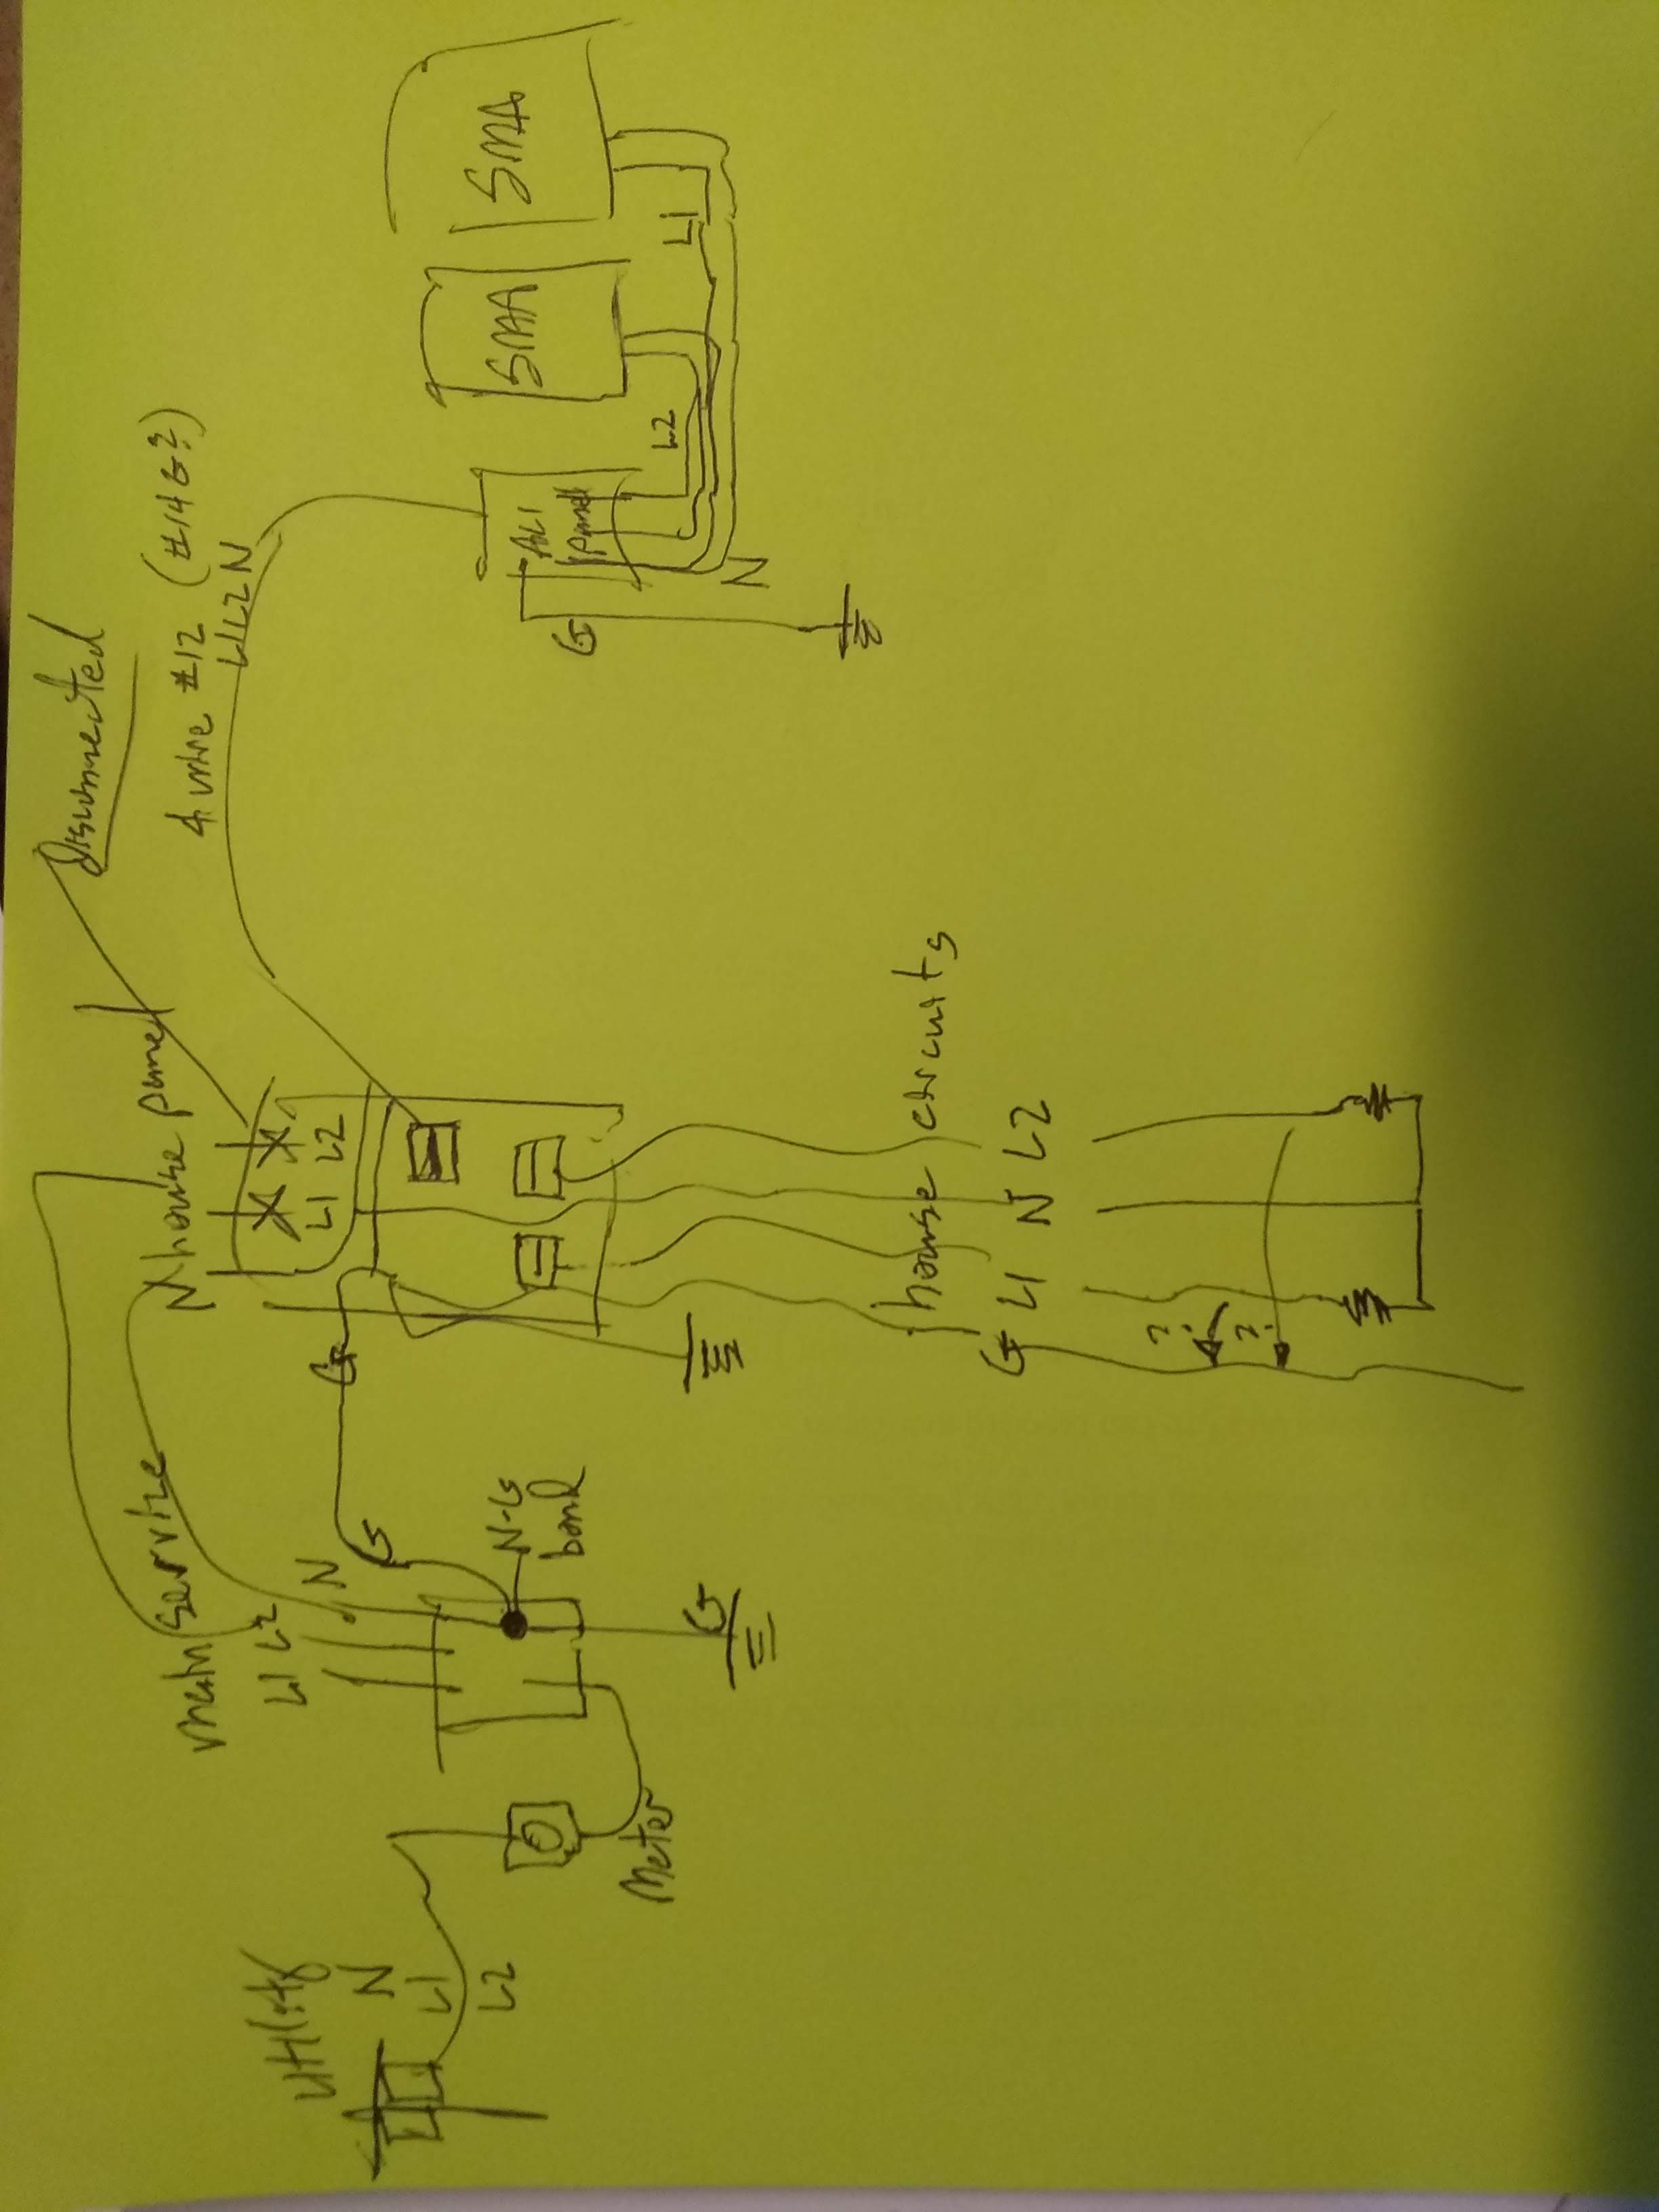 Utility
N
L1
L2
Meter
main service
L1 L2 N
G
N-G
bond
G
G
N house panel
L1 L2
Disconnected
4 wire #12 (#14 G?)
L1 L2 N
house circuits
G L1 N L2
?
?
panel
G
N
L2
L1
SMA
SMA